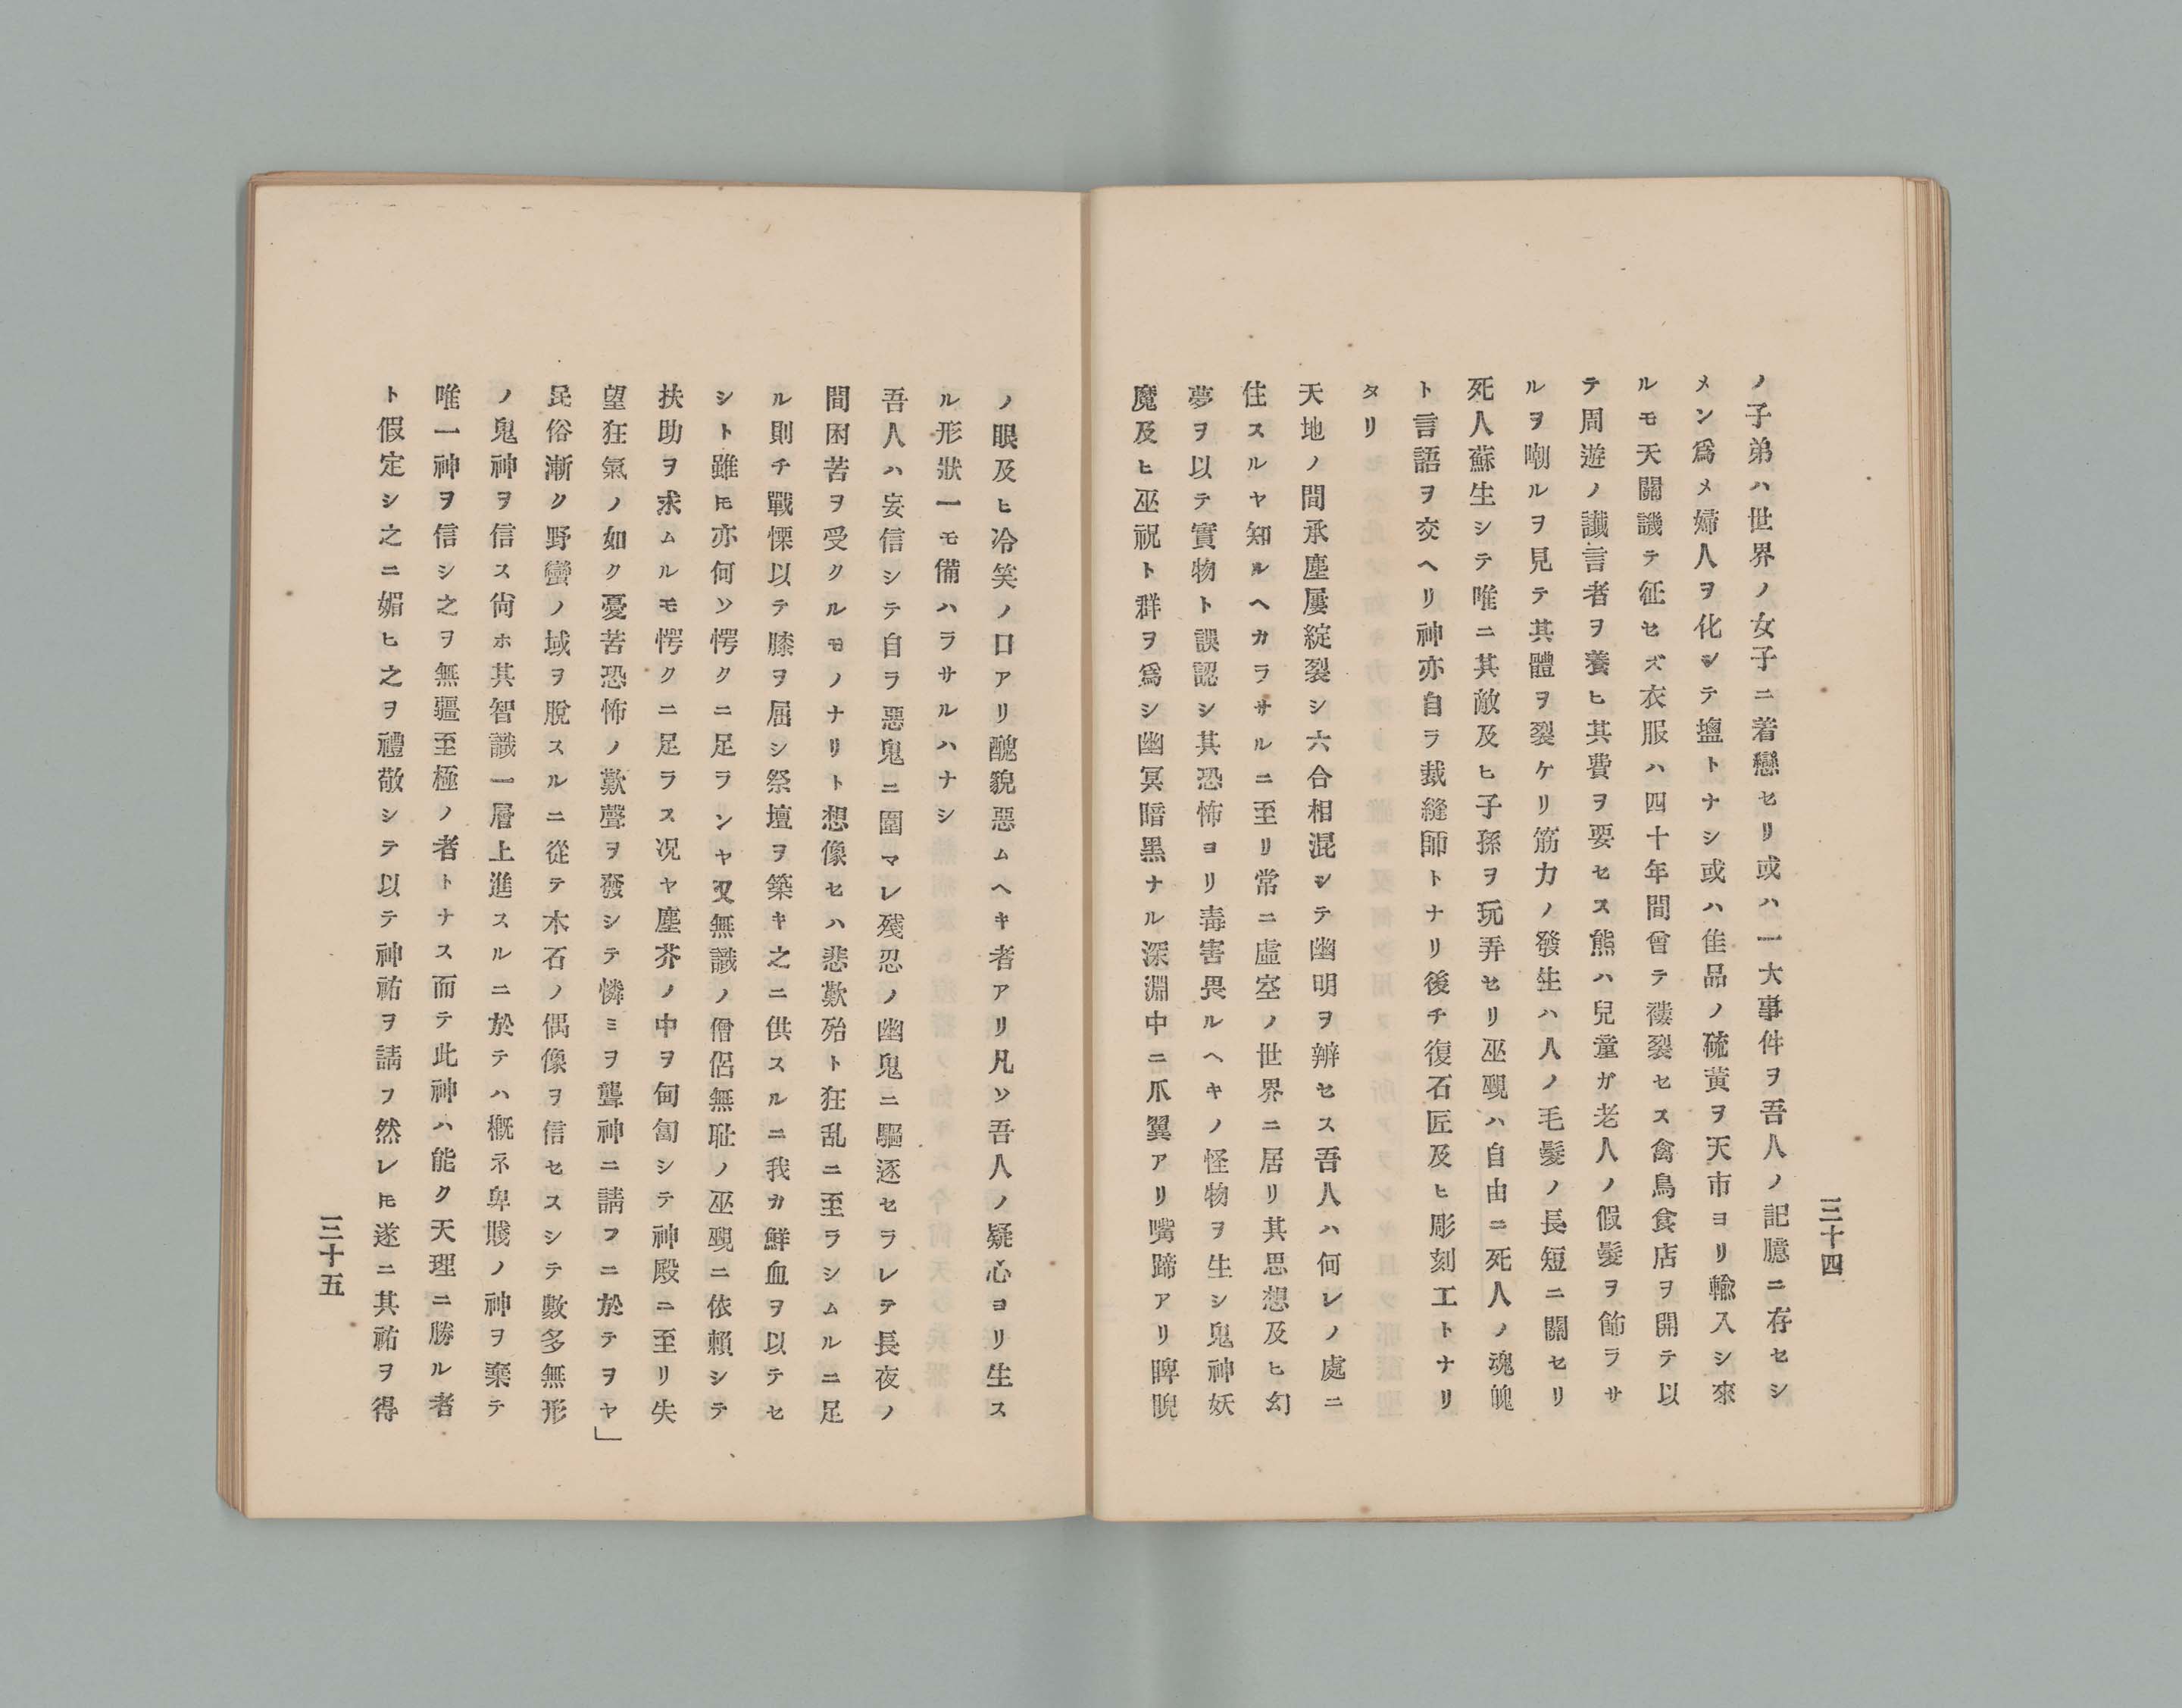 三十四
ノ子弟ハ世界ノ女子ニ着戀セリ或ハ一大事件ヲ吾人ノ記臆ニ存セシ
メン爲メ婦人ヲ化シテ鹽トナシ或ハ佳品ノ硫黄ヲ天市ヨリ輸入シ來
ルモ天關譏テ征セズ衣服ハ四十年間曾テ褸裂セス禽鳥食店ヲ開テ以
テ周遊ノ讖言者ヲ養ヒ其費ヲ要セス熊ハ兒童ガ老人ノ假髮ヲ飾ラサ
ルヲ嘲ルヲ見テ其體ヲ裂ケリ筋力ノ發生ハ人ノ毛髮ノ長短ニ關セリ
死人蘇生シテ唯ニ其敵及ヒ子孫ヲ玩弄セリ巫覡ハ自由ニ死人ノ魂魄
ト言語ヲ交ヘリ神亦自ラ裁縫師トナリ後チ復石匠及ヒ彫刻工トナリ
タリ
天地ノ間承塵屢綻裂シ六合相混シテ幽明ヲ辨セス吾人ハ何レノ處ニ
住スルヤ知ルヘカラサルニ至リ常ニ虛空ノ世界ニ居リ其思想及ヒ幻
夢ヲ以テ實物ト誤認シ其恐怖ヨリ毒害畏ルヘキノ怪物ヲ生シ鬼神妖
魔及ヒ巫祝ト群ヲ爲シ幽冥暗黑ナル深淵中ニ爪翼アリ嘴蹄アリ睥睨
ノ眼及ヒ冷笑ノ口アリ醜貌惡ムヘキ者アリ凡ソ吾人ノ疑心ヨリ生ス
ル形狀一モ備ハラサルハナシ
吾人ハ妄信シテ自ラ惡鬼ニ圍マレ殘忍ノ幽鬼ニ驅逐セラレテ長夜ノ
間困苦ヲ受クルモノナリト想像セハ悲歎殆ト狂乱ニ至ラシムルニ足
ル則チ戰慄以テ膝ヲ屈シ祭壇ヲ築キ之ニ供スルニ我カ鮮血ヲ以テセ
シト雖ヒ亦何ソ愕クニ足ランヤ又無識ノ僧侶無耻ノ巫覡ニ依賴シテ
扶助ヲ求ムルモ愕クニ足ラス况ヤ塵芥ノ中ヲ匍匐シテ神殿ニ至リ失
望狂氣ノ如ク憂苦恐怖ノ歎聲ヲ發シテ憐ミヲ聾神ニ請フニ於テヲヤ」
民俗漸ク野蠻ノ域ヲ脫スルニ從テ木石ノ偶像ヲ信セスシテ數多無形
ノ鬼神ヲ信ス尙ホ其智識一層上進スルニ於テハ概ネ卑賤ノ神ヲ棄テ
唯一神ヲ信シ之ヲ無疆至極ノ者トナス而テ此神ハ能ク天理ニ勝ル者
ト假定シ之ニ媚ヒ之ヲ禮敬シテ以テ神祐ヲ請フ然レ𪜈遂ニ其祐ヲ得
三十五